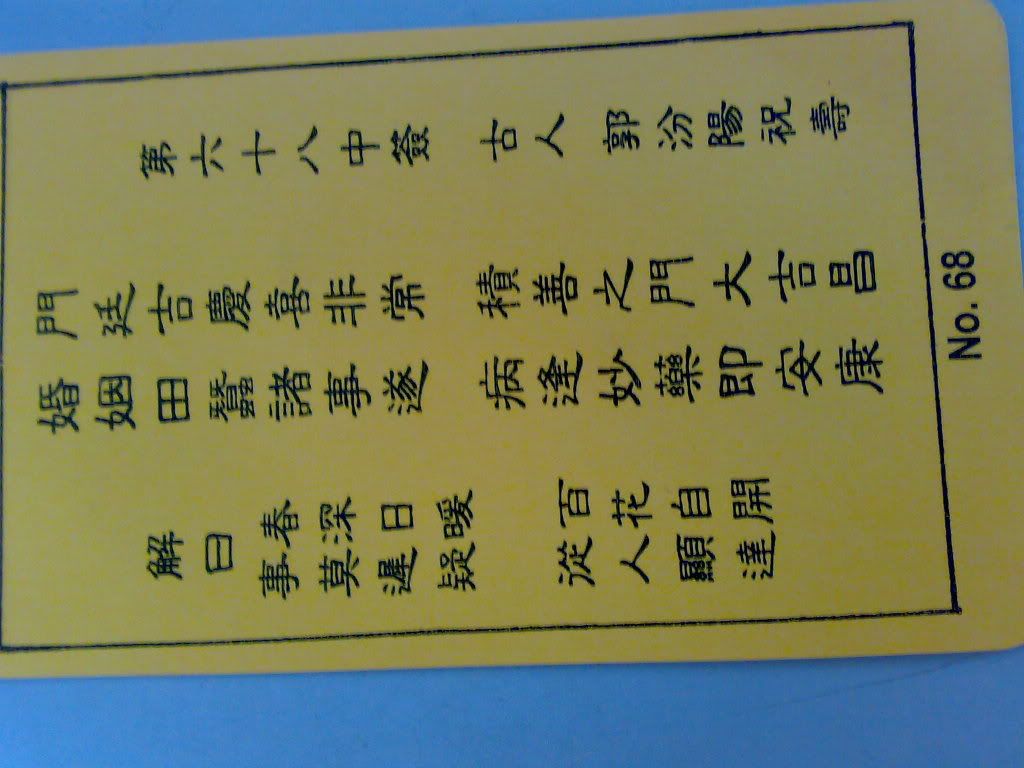 第六十八中簽　古人　郭汾陽祝壽
門廷吉慶喜非常　積善之門大吉昌
婚姻田蠶諸事遂　病逢妙藥即安康
解曰
春深日暖　百花自開
事莫遲疑　從人顯達
No.68